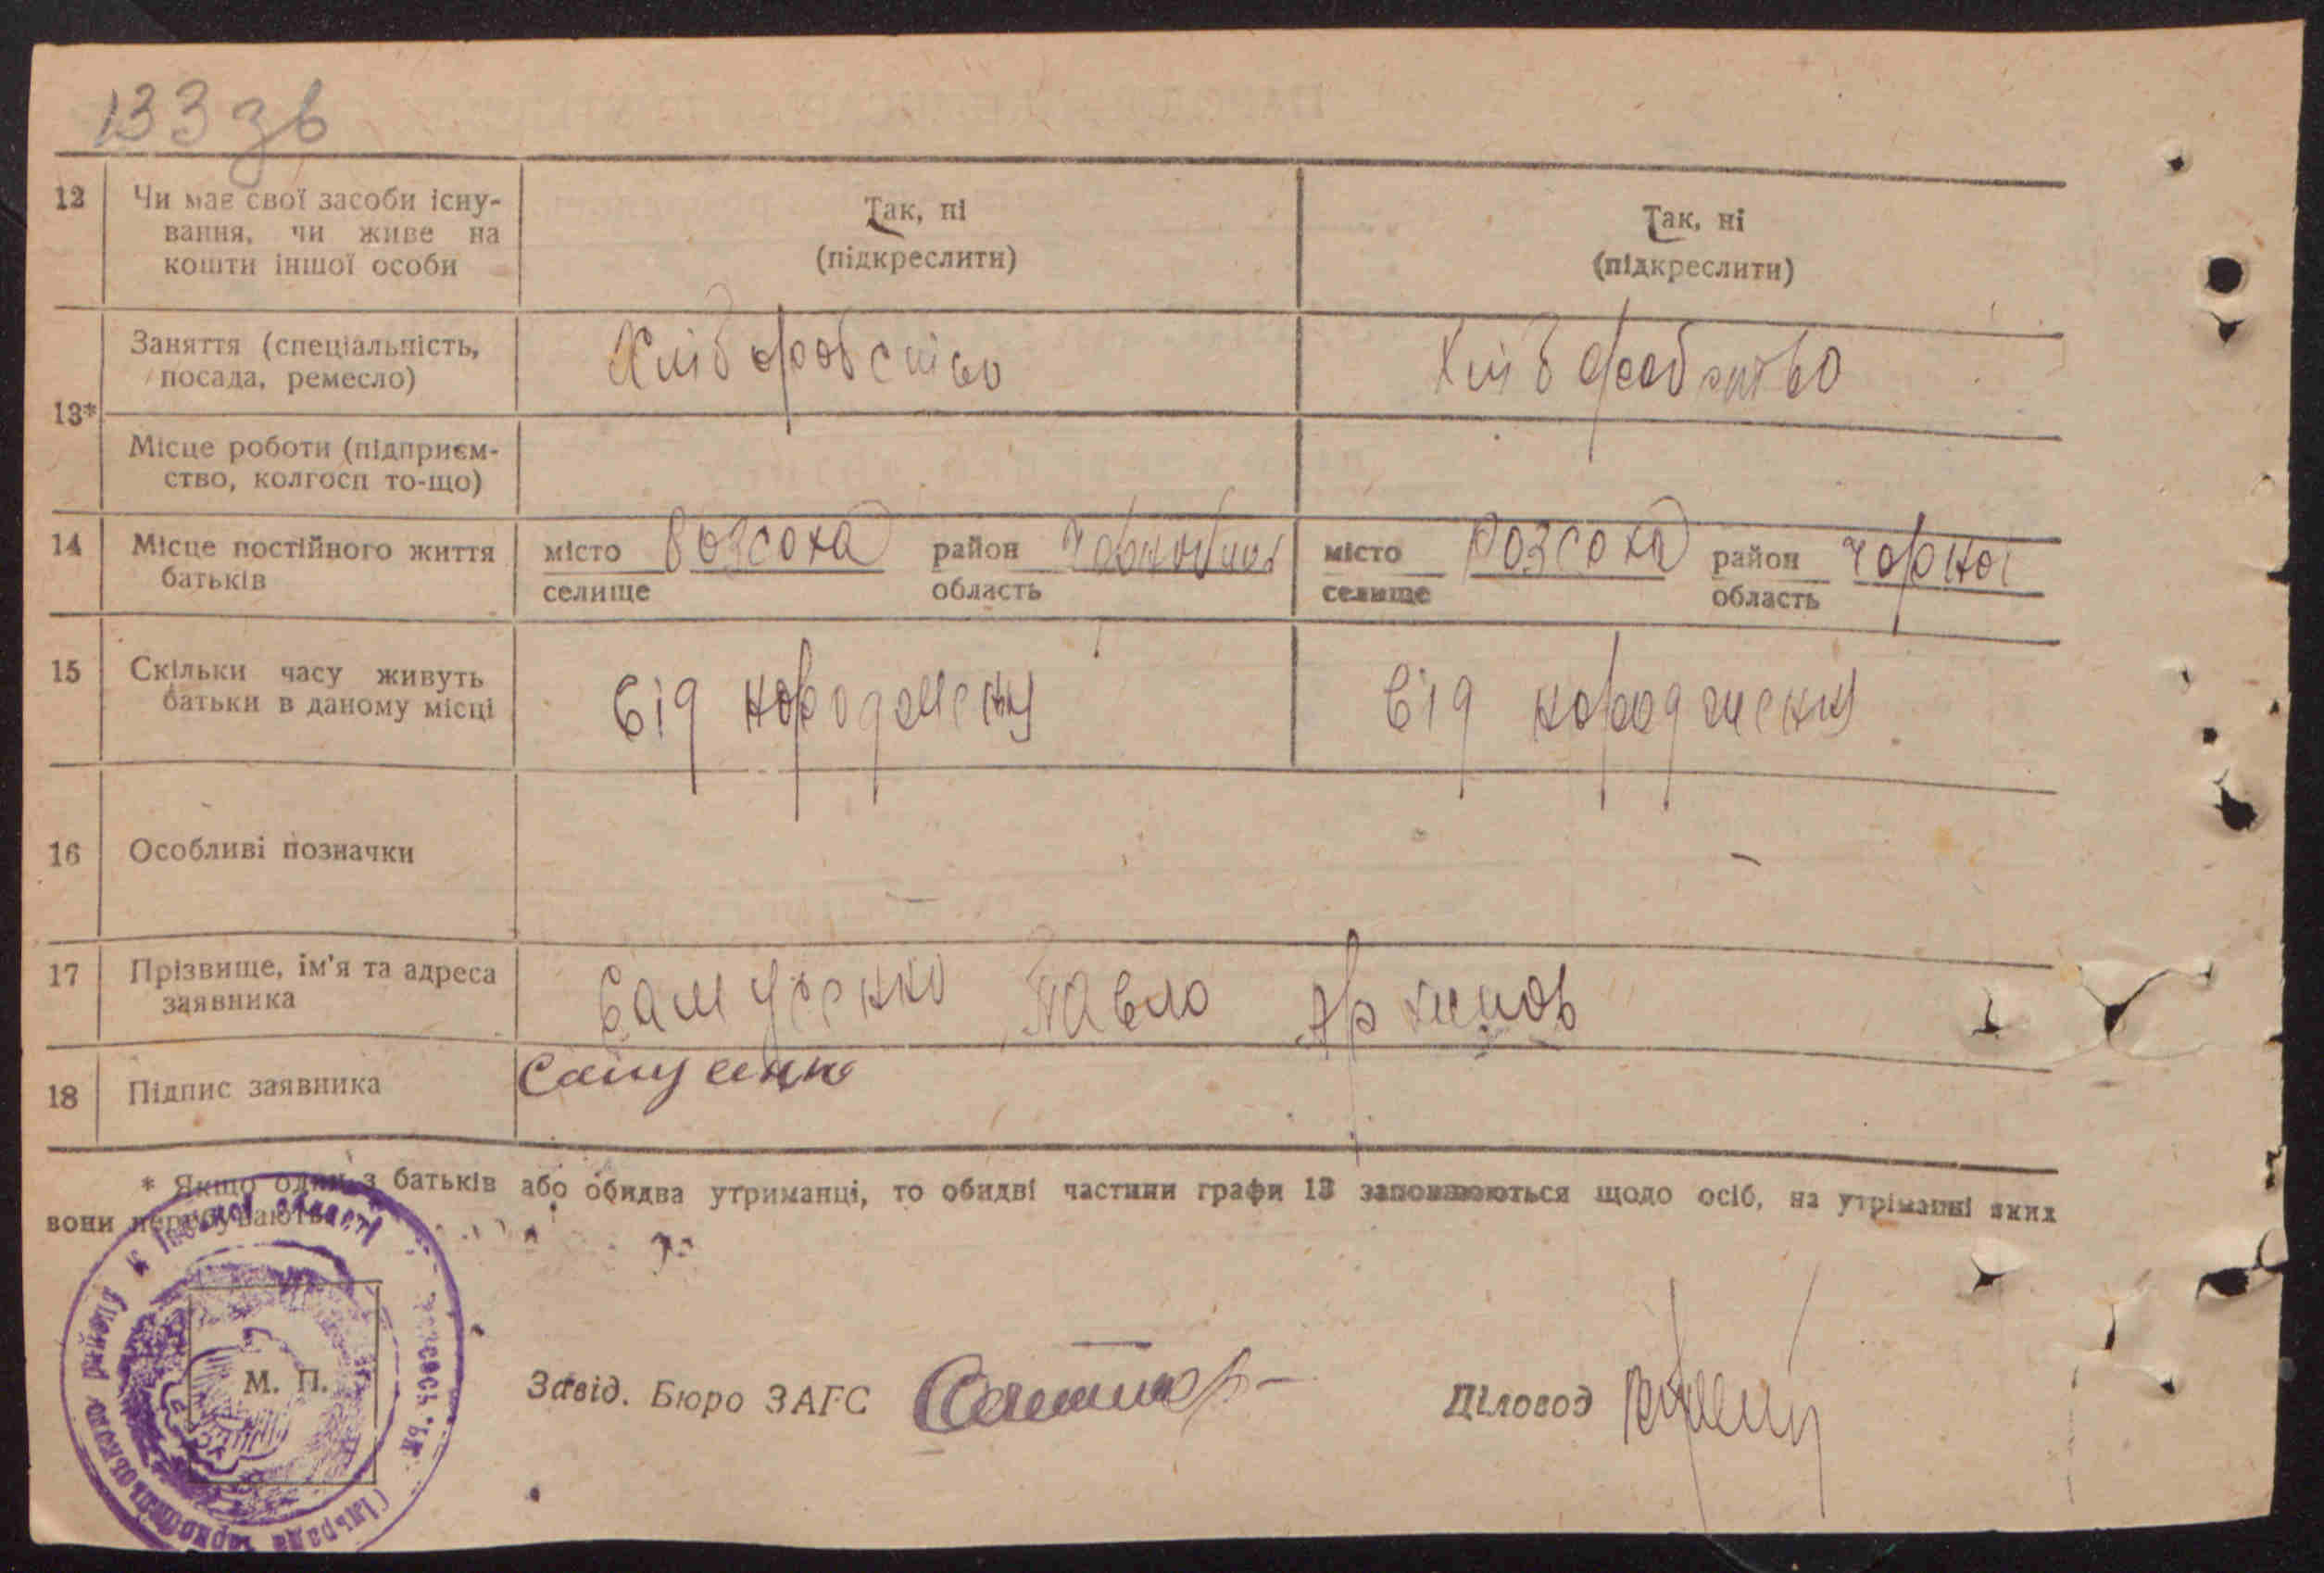 133 зв
12 Чи має свої засоби існу-
вання, чи живе на
кошти іншої особи
Так, ні
(підкреслити)
Так, ні
(підкреслити)
13*
Заняття (спеціальність,
посада, ремесло)
Хліборобство
Хліборобство
Місце роботи (підприєм-
ство, колгосп то-що)
14 Місце постійного життя
батьків
місто Розсоха район
селище область
місто Розсоха район Чорноб
селище область
15 Скільки часу живуть
батьки в даному місці
від народження
від народження
16 Особливі позначки
17 Прізвище, ім'я та адреса
заявника
Самусенко Павло Архипов
18 Підпис заявника
Самусенко
* Якщо один з батьків або обидва утриманці, то обидві частини графи 13 заповнюються щодо осіб, на утріманні яких
вони перебувають
М. П.
Завід. Бюро ЗАГС
Діловод